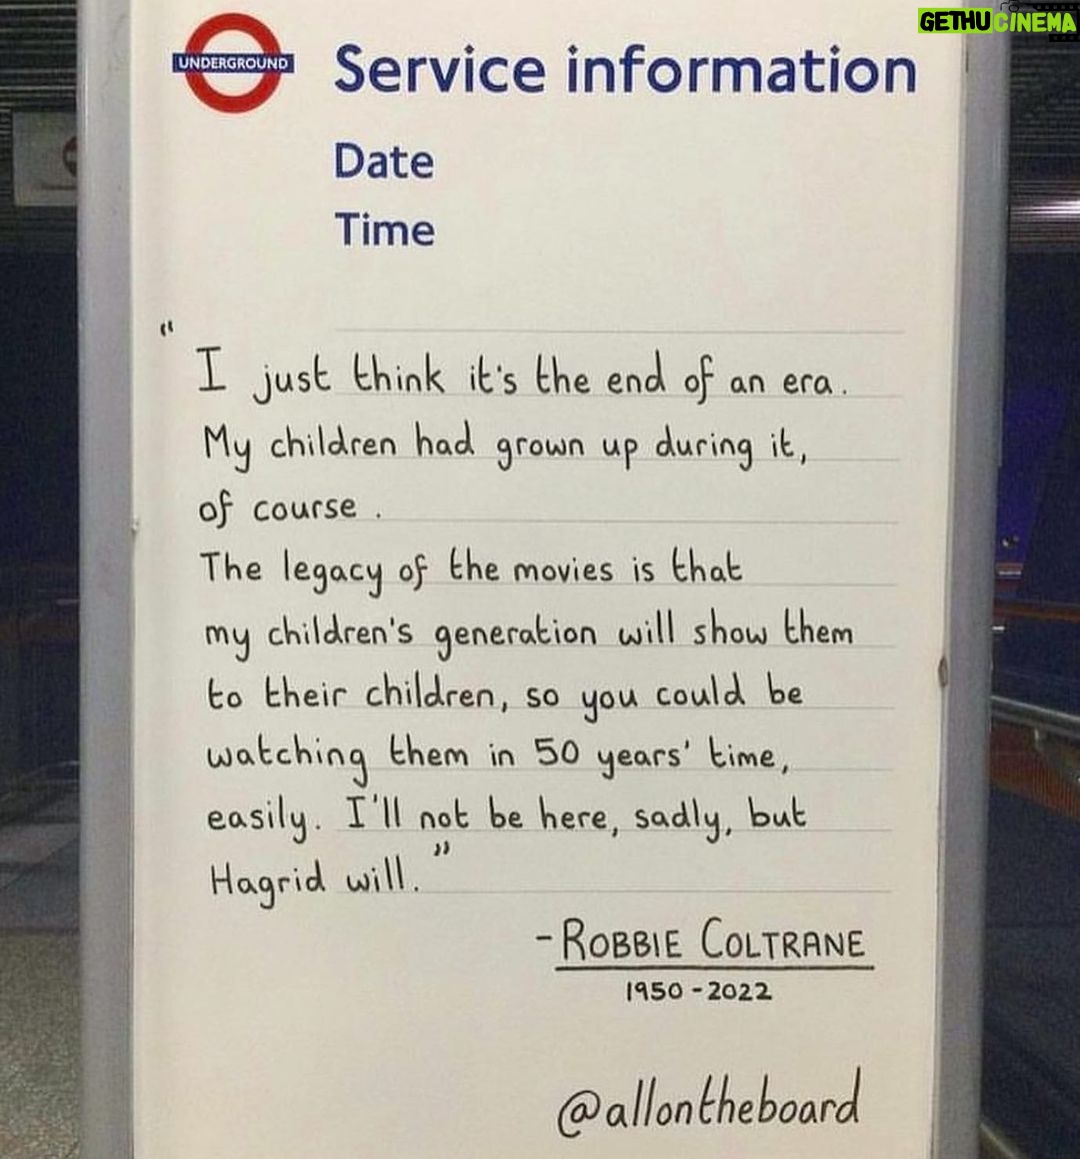 GETHUCINEMA
UNDERGROUND
Service information
Date
Time
"
I just think it's the end of an era.
My children had grown up during it,
of course .
The legacy of the movies is that
my children's generation will show them
to their children, so you could be
watching them in 50 years' time,
easily. I'll not be here, sadly, but
Hagrid will."
- ROBBIE COLTRANE
1950 - 2022
@allontheboard